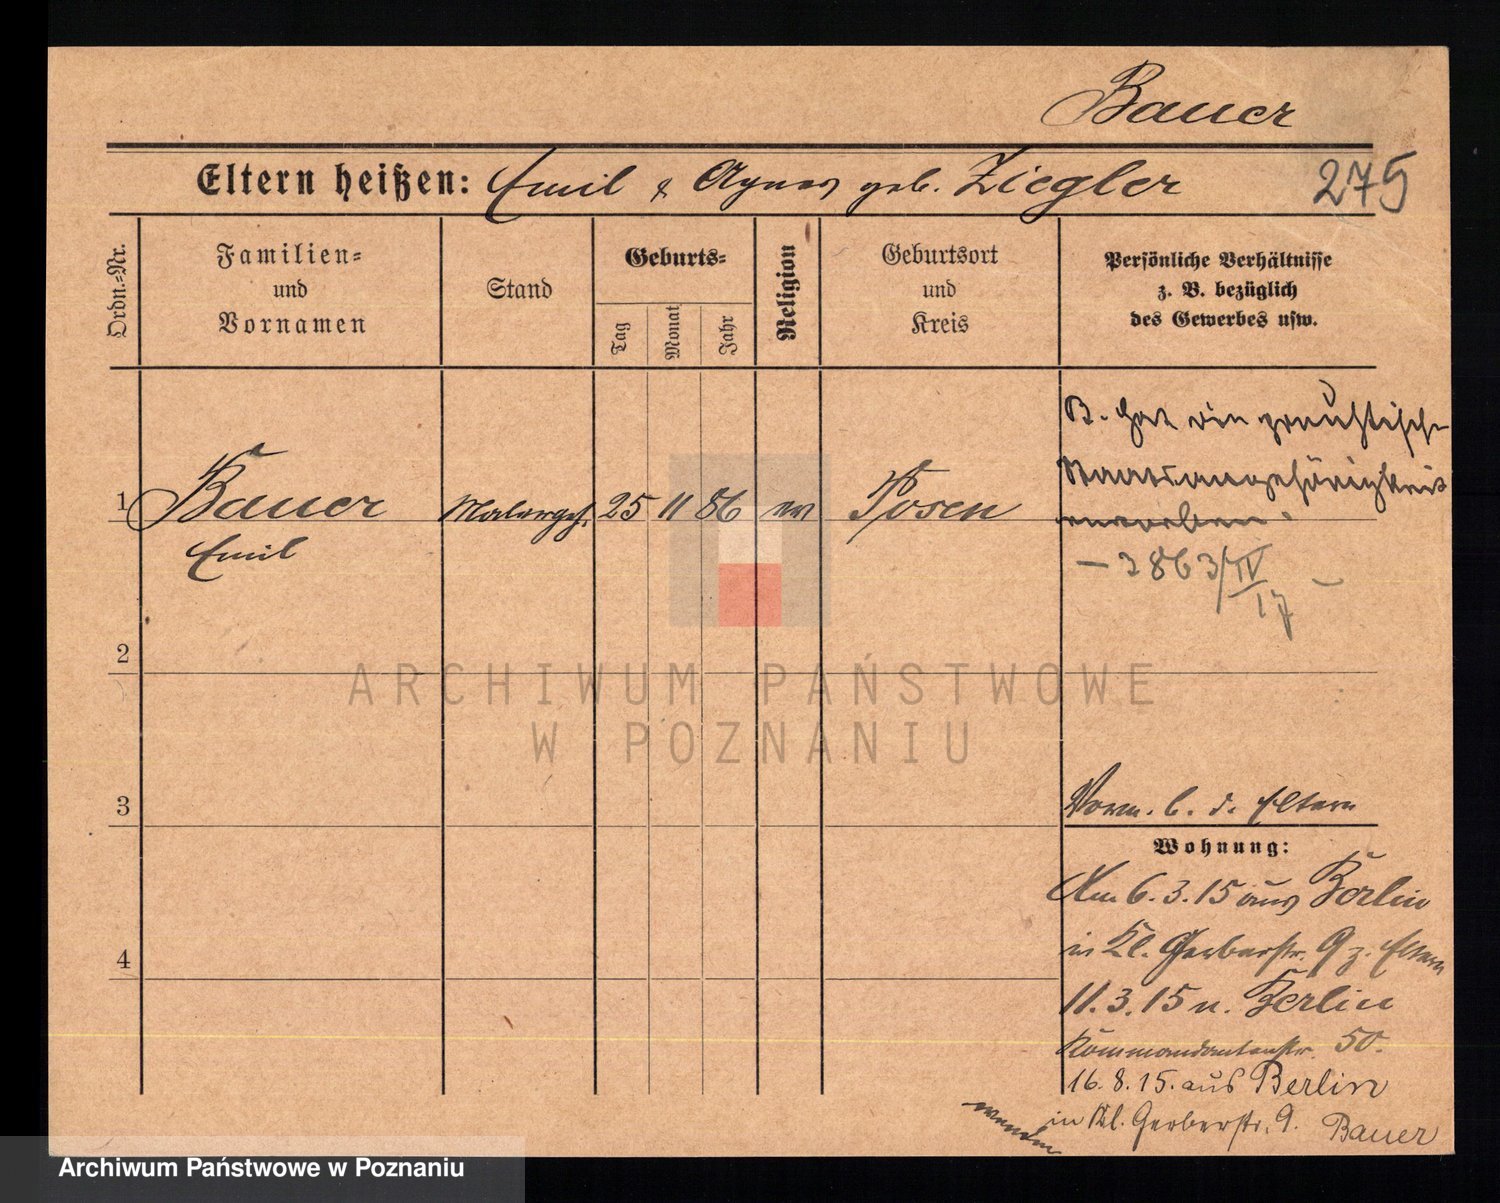 Bauer
Eltern heißen: Emil & Agnes geb. Ziegler
275
Ordn.-Nr.
Familien-
und
Vornamen
Stand
Geburts-
Tag
Monat
Jahr
Religion
Geburtsort
und
Kreis
Persönliche Verhältnisse
z. B. bezüglich
des Gewerbes usw.
B. hat die preußische
Staatsangehörigkeit
erworben.
1 Bauer Malergeh. 25 11 86 ev Posen
Emil
- 3863/IV
17 -
2
ARCHIWUM PAŃSTWOWE
W POZNANIU
3
Vorm. b. d. Eltern
Wohnung:
Am 6.3.15 aus Berlin
in Kl. Gerberstr. 9 z. Eltern
4
11.3.15 n. Berlin
Kommandantenstr. 50.
16.8.15. aus Berlin
in Kl. Gerberstr. 9. Bauer
wenden
Archiwum Państwowe w Poznaniu